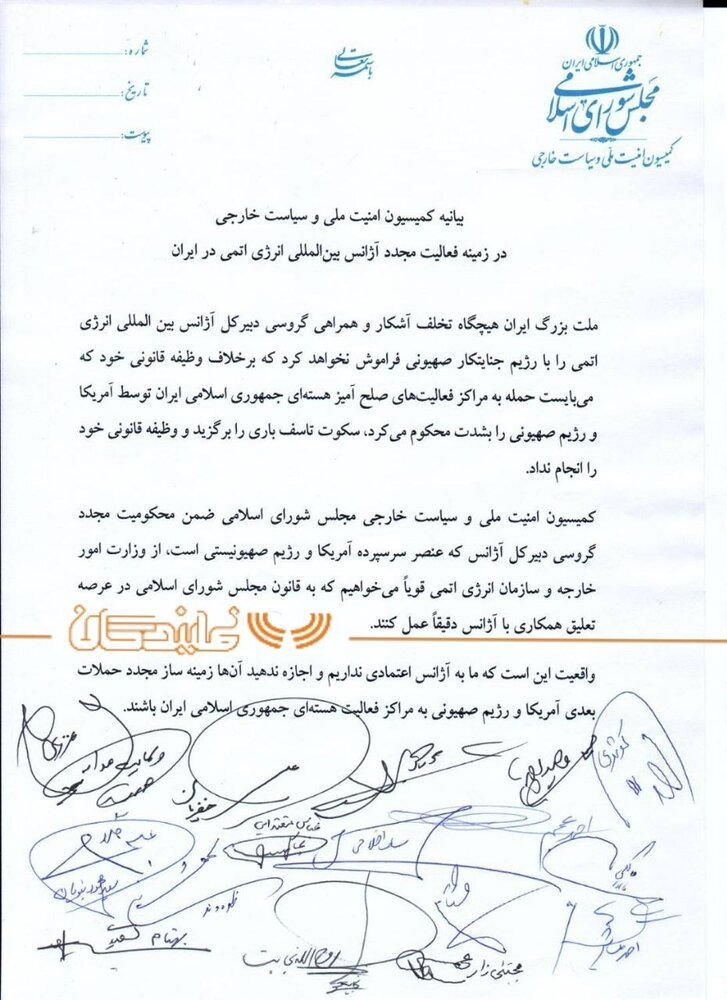 جمهوری اسلامی ایران
مجلس شورای اسلامی
کمیسیون امنیت ملی و سیاست خارجی
باسمه تعالی
شماره:
تاریخ:
پیوست:
بیانیه کمیسیون امنیت ملی و سیاست خارجی
در زمینه فعالیت مجدد آژانس بین‌المللی انرژی اتمی در ایران
ملت بزرگ ایران هیچگاه تخلف آشکار و همراهی گروسی دبیرکل آژانس بین المللی انرژی
اتمی را با رژیم جنایتکار صهیونی فراموش نخواهد کرد که برخلاف وظیفه قانونی خود که
می‌بایست حمله به مراکز فعالیت‌های صلح آمیز هسته‌ای جمهوری اسلامی ایران توسط آمریکا
و رژیم صهیونی را بشدت محکوم می‌کرد، سکوت تاسف باری را برگزید و وظیفه قانونی خود
را انجام نداد.
کمیسیون امنیت ملی و سیاست خارجی مجلس شورای اسلامی ضمن محکومیت مجدد
گروسی دبیرکل آژانس که عنصر سرسپرده آمریکا و رژیم صهیونیستی است، از وزارت امور
خارجه و سازمان انرژی اتمی قویاً می‌خواهیم که به قانون مجلس شورای اسلامی در عرصه
تعلیق همکاری با آژانس دقیقاً عمل کنند.
نمایندگان
واقعیت این است که ما به آژانس اعتمادی نداریم و اجازه ندهید آن‌ها زمینه ساز مجدد حملات
بعدی آمریکا و رژیم صهیونی به مراکز فعالیت هسته‌ای جمهوری اسلامی ایران باشند.
کوثری
عباس مقتدایی
بهنام سعیدی
روح اله نجابت
مجتبی زارعی